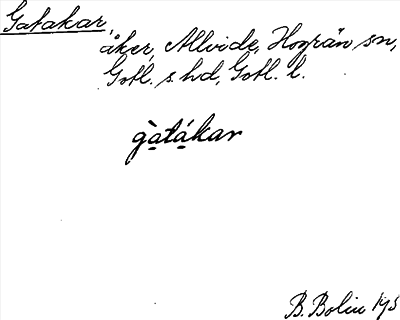 Gatakar,
åker, Allvide, Hogrän sn,
Gotl. s. hd, Gotl. l.
gà̱tá̱kar
B. Bolin